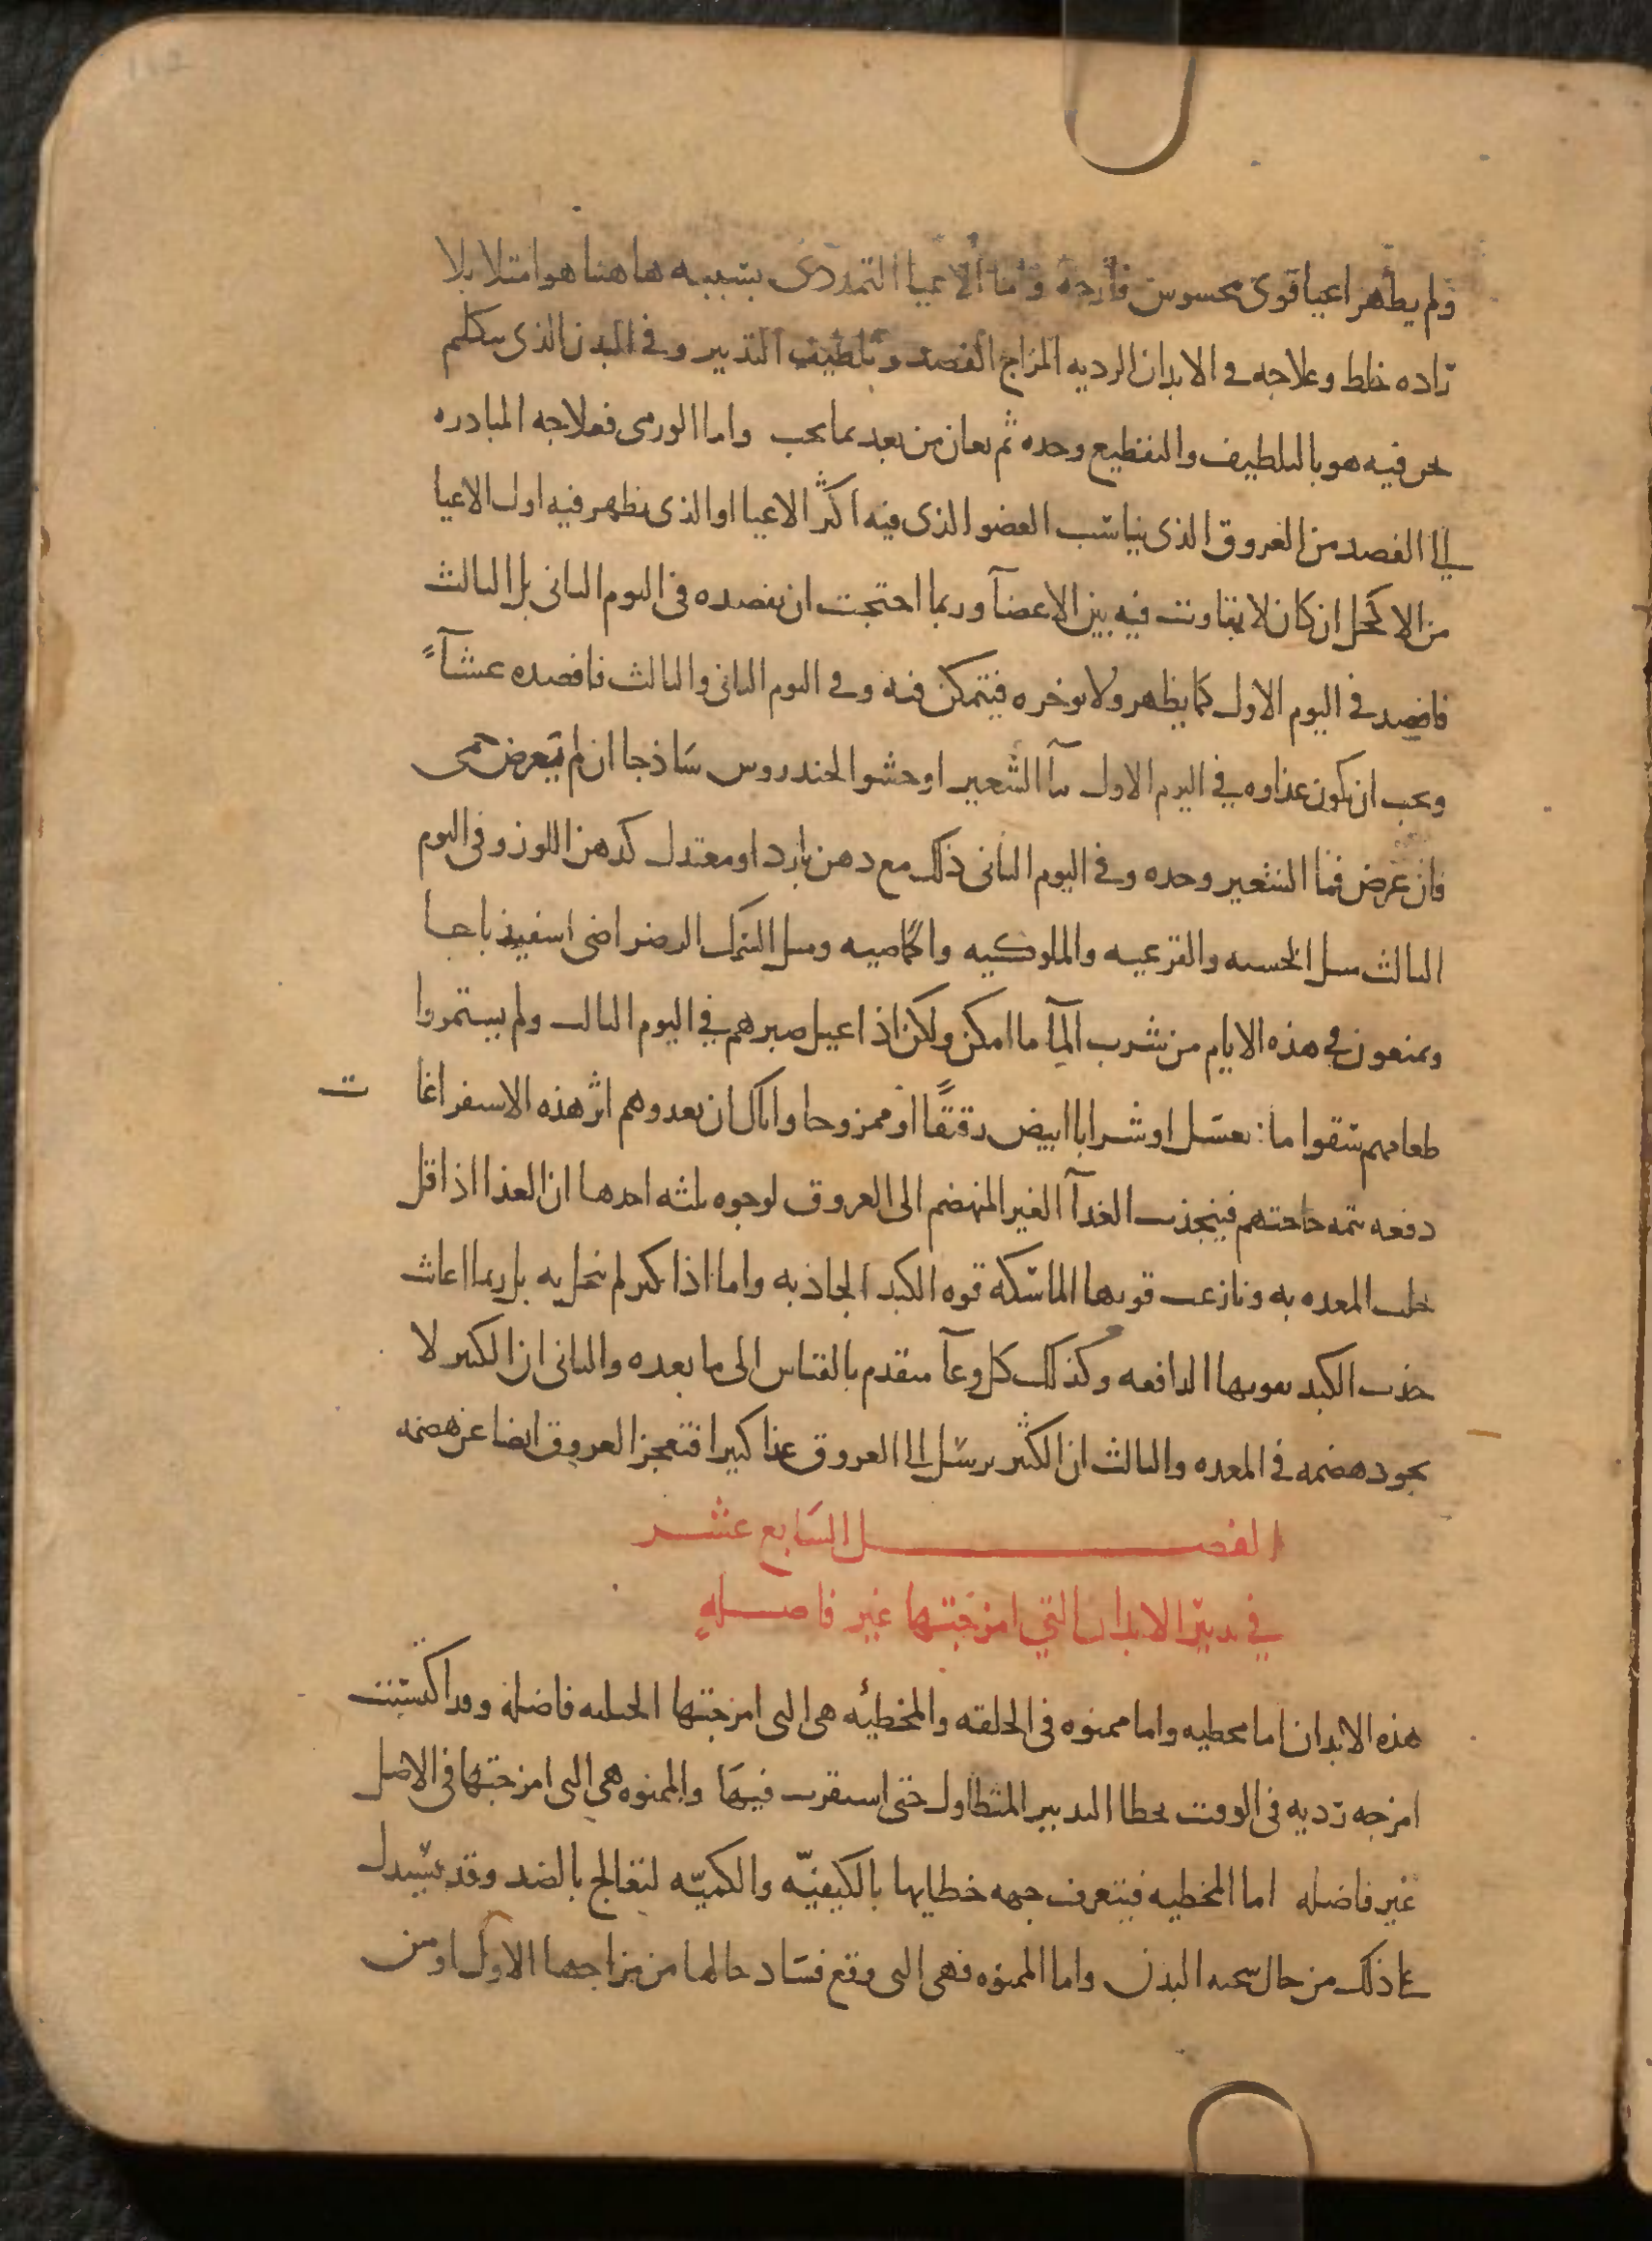 ولم يظهر اعيا قوى محسوس فارحه واما الاعيا التمددى بسببه هاهنا هو امتلا بلا
رداه خلط وعلاجه فى الابدان الرديه المزاج الفصد وتلطيف التدبير وفى البدن الذى نتكلم
نحن فيه هو بالتلطيف والتقطيع وحده ثم يعان من بعد بما يجب واما الورمى فعلاجه المبادره
الى الفصد من العروق الذى يناسب العضو الذى فيه اكثر الاعيا او الذى يظهر فيه اول الاعيا
من الاكحل ان كان لا يتفاوت فيه بين الاعضآ وربما احتجت ان تفصده فى اليوم الثانى بل الثالث
فافصد فى اليوم الاول كما يظهر ولا توخره فيتمكن فيه وفى اليوم الثانى والثالث فافصده عشآءً
ويجب ان يكون غذاوه فى اليوم الاول مآ الشعير او حشو الحندروس ساذجا ان لم يعرض حمى
فان عرض فمآ الشعير وحده وفى اليوم الثانى ذلك مع دهن بارد او معتدل كدهن اللوز وفى اليوم
الثالث مثل الخسيه والقرعيه والملوكيه والحماضيه ومثل السمك الرضراضى اسفيذباجا
ويمنعون فى هذه الايام من شرب المآ ما امكن ولكن اذا عيل صبرهم فى اليوم الثالث ولم يستمروا
طعامهم سقوا مآ بعسل او شرابا ابيض رقيقًا او ممزوجا واياك ان تعدوهم اثر هذه الاستفراغات
دفعه تتمه حاجتهم فينجذب الغذآ الغير المنهضم الى العروق لوجوه ثلثه احدها ان الغذا اذا قل
بخلت المعده به ونازعت قوتها الماسكه قوه الكبد الجاذبه واما اذا كثر لم تبخل به بل ربما اعانت
جذب الكبد بقوتها الدافعه وكذلك كل وعآ متقدم بالقياس الى ما بعده والثانى ان الكثير لا
يجود هضمه فى المعده والثالث ان الكثير يرسل الى العروق غذا كثيرا فتعجز العروق ايضا عن هضمه
الفصل السابع عشر
فى تدبير الابدان التى امزجتها غير فاضله
هذه الابدان اما مخطيه واما ممنوه فى الخلقه والمخطئه هى التى امزجتها الجبليه فاضله وقد اكتسبت
امزجه رديه فى الوقت بخطا التدبير المتطاول حتى استقرت فيها والممنوه هى التى امزجتها فى الاصل
غير فاضله اما المخطيه فيتعرف جهه خطايها بالكيفيه والكميه لتعالج بالضد وقد يستدل
على ذلك من حال سحنه البدن واما الممنوه فهى التى وقع فساد حالها من مزاجها الاول او من